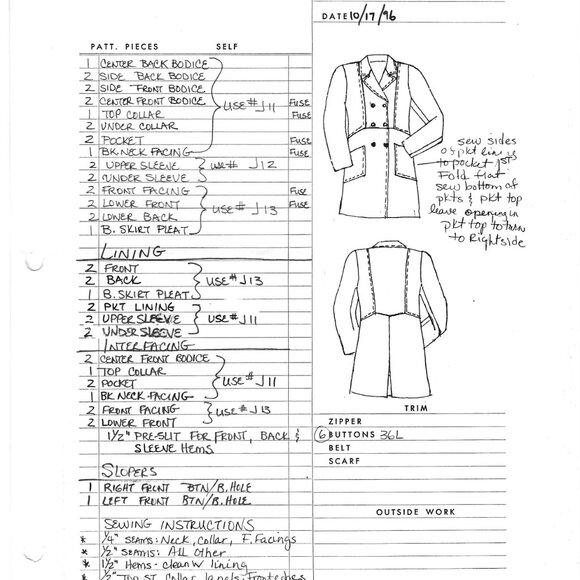 DATE 10/17/96
PATT. PIECES SELF
1 CENTER BACK BODICE
2 SIDE BACK BODICE
2 SIDE FRONT BODICE
2 CENTER FRONT BODICE USE # J11 Fuse
1 TOP COLLAR Fuse
2 UNDER COLLAR
2 POCKET Fuse
1 BK NECK FACING Fuse
2 UPPER SLEEVE use # J12
2 UNDER SLEEVE
2 FRONT FACING Fuse
2 LOWER FRONT USE # J13 Fuse
2 LOWER BACK
1 B. SKIRT PLEAT
LINING
2 FRONT
2 BACK USE # J13
1 B. SKIRT PLEAT
2 PKT LINING
2 UPPER SLEEVE USE # J11
2 UNDER SLEEVE
INTERFACING
2 CENTER FRONT BODICE
1 TOP COLLAR
2 POCKET USE # J11
1 BK NECK FACING
2 FRONT FACING USE # J13
2 LOWER FRONT
1½" PRE-SLIT FOR FRONT, BACK &
SLEEVE HEMS.
SLOPERS
1 RIGHT FRONT BTN/B.HOLE
1 LEFT FRONT BTN/B.HOLE
SEWING INSTRUCTIONS
* ¼" SEAMS: Neck, Collar, F. Facings
* ½" SEAMS: All Other
* 1½" Hems - clean w lining
* ½" Top St. Collar, lapels, Front
sew sides
of pkt lin
to pocket 1st
Fold flat
sew bottom of
pkts & pkt top
leave opening in
pkt top to turn
to Rightside
TRIM
ZIPPER
6 BUTTONS 36L
BELT
SCARF
OUTSIDE WORK